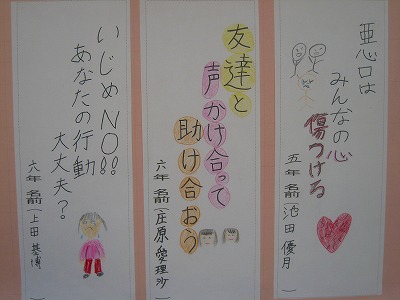 悪口は
みんなの心
傷つける
五年 名前(池田 優月)
友達と
声かけ合って
助け合おう
六年 名前(庄原 愛理沙)
いじめNO!!
あなたの行動
大丈夫?
六年 名前(上田 基博)